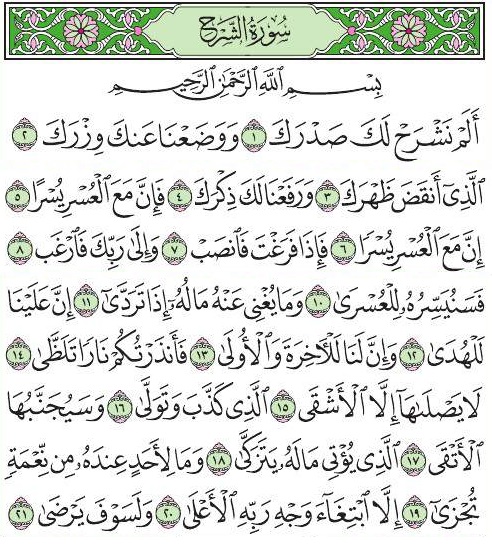 سُورَةُ الشَّرْحِ
بِسْمِ اللَّهِ الرَّحْمَٰنِ الرَّحِيمِ
أَلَمْ نَشْرَحْ لَكَ صَدْرَكَ ١ وَوَضَعْنَا عَنكَ وِزْرَكَ ٢
الَّذِي أَنقَضَ ظَهْرَكَ ٣ وَرَفَعْنَا لَكَ ذِكْرَكَ ٤ فَإِنَّ مَعَ الْعُسْرِ يُسْرًا ٥
إِنَّ مَعَ الْعُسْرِ يُسْرًا ٦ فَإِذَا فَرَغْتَ فَانصَبْ ٧ وَإِلَىٰ رَبِّكَ فَارْغَب ٨
فَسَنُيَسِّرُهُ لِلْعُسْرَىٰ ١٠ وَمَا يُغْنِي عَنْهُ مَالُهُ إِذَا تَرَدَّىٰ ١١ إِنَّ عَلَيْنَا
لَلْهُدَىٰ ١٢ وَإِنَّ لَنَا لَلْآخِرَةَ وَالْأُولَىٰ ١٣ فَأَنذَرْتُكُمْ نَارًا تَلَظَّىٰ ١٤
لَا يَصْلَاهَا إِلَّا الْأَشْقَى ١٥ الَّذِي كَذَّبَ وَتَوَلَّىٰ ١٦ وَسَيُجَنَّبُهَا
الْأَتْقَى ١٧ الَّذِي يُؤْتِي مَالَهُ يَتَزَكَّىٰ ١٨ وَمَا لِأَحَدٍ عِندَهُ مِن نِّعْمَةٍ
تُجْزَىٰ ١٩ إِلَّا ابْتِغَاءَ وَجْهِ رَبِّهِ الْأَعْلَىٰ ٢٠ وَلَسَوْفَ يَرْضَىٰ ٢١